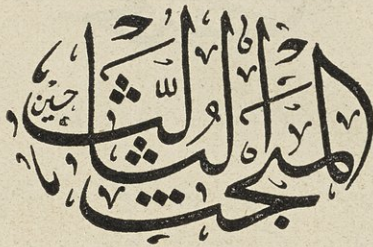 المبحث الثالث
حسين